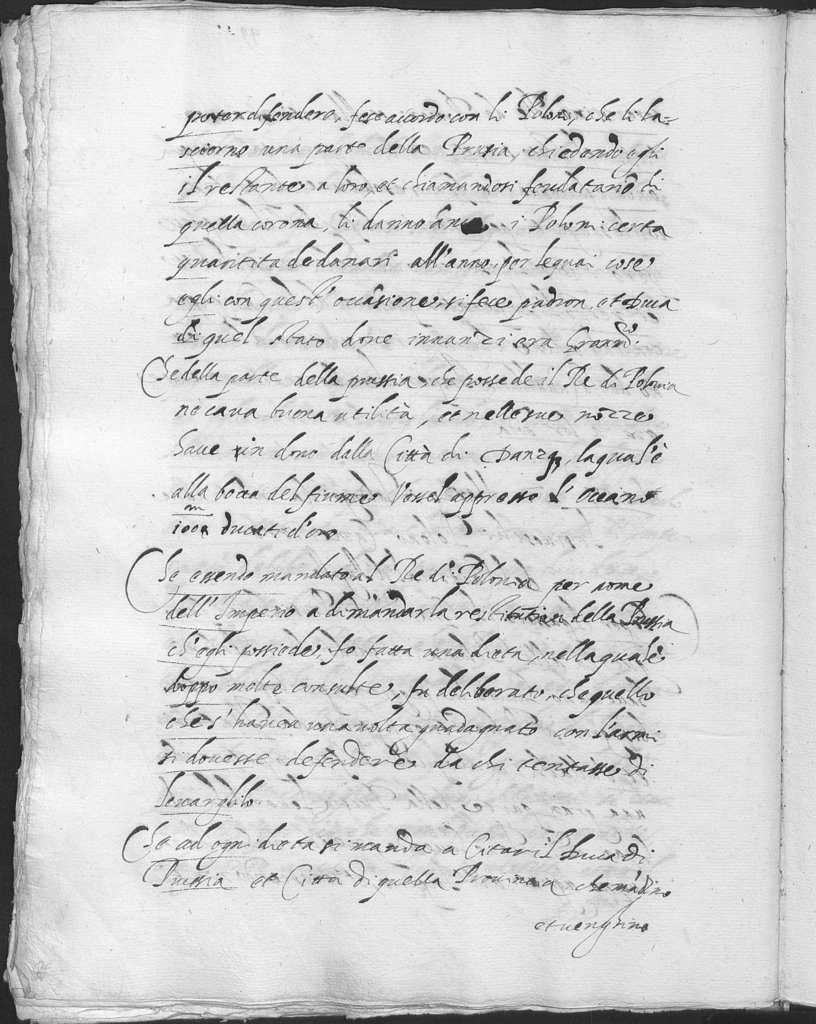 poter difendere, fece accordo con li Poloni, che li la-
sciorno una parte della Prusia, chiedendo egli
il restante a loro, et chiamandosi feudatario di
quella corona, li danno i Poloni certa
quantita de danari all'anno, per lequai cose
egli con quest'occasione si fece padron, et Duca
di quel stato dove innanzi era
Che della parte della prussia, che possede il Re di Polonia
ne cava buona utilità, et nelle sue nozze
have in dono dalla Città di Danzq, laqual'è
alla bocca del fiume Vossel appresso l'Oceano
m
100 ducati d'oro
Che essendo mandato al Re di Polonia per nome
dell'Imperio a dimandar la restitution della Prussia
ch'egli possiede, fo fatta una dieta, nella quale
doppo molte consulte, fu deliberato, che quello
che s'haveva una volta guadagnato con l'armi
si dovesse defendere da chi tentasse di
levarglilo.
Che ad ogni dieta si manda a Citar il Duca di
Prussia et Città di quella Provincia che mādino
et venghino